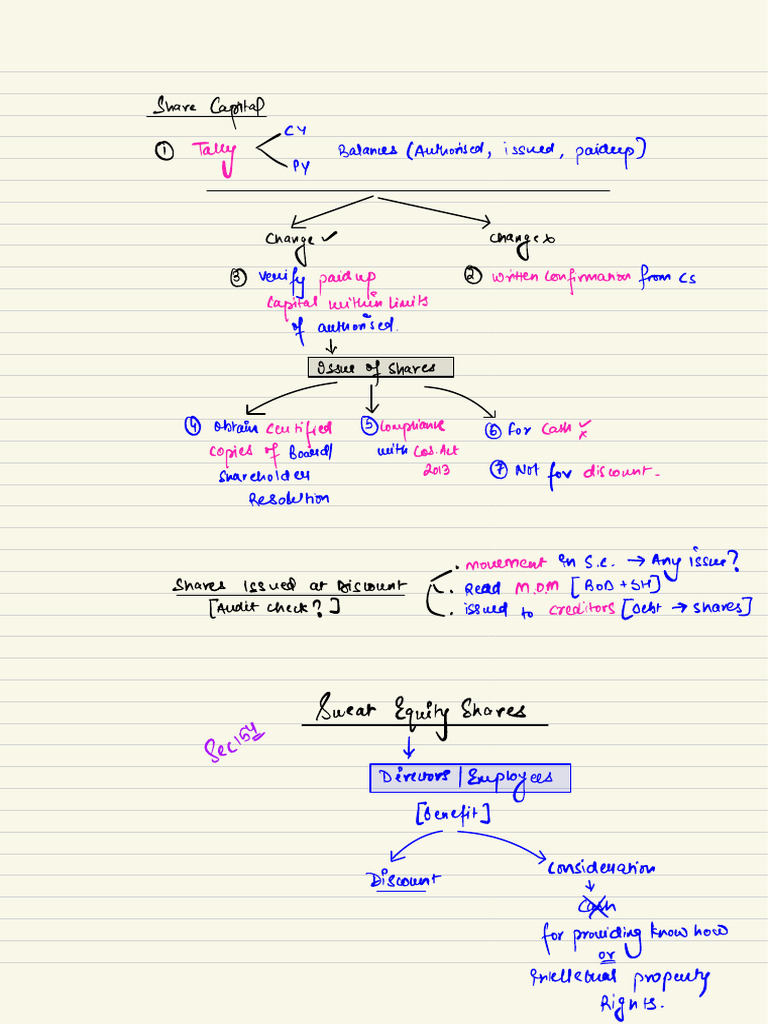 Share Capital
① Tally CY Balances (Authorised, issued, paidup)
PY
Change ✓ Change x
③ verify paid up ② Written Confirmation from CS
Capital within limits
of authorised.
Issue of shares
④ Obtain certified ⑤ Compliance ⑥ For Cash ✓ x
copies of Board/ with Cos. Act ⑦ Not for discount.
Shareholder 2013
Resolution
. movement in S.C. → Any issue?
Shares Issued at Discount . Read M.O.M [BoD + SH]
[Audit check?] . issued to creditors [Debt → shares]
Sweat Equity Shares
Sec 154
Directors | Employees
[Benefit]
Discount Consideration
Cash
for providing know how
or
Intellectual property
Rights.